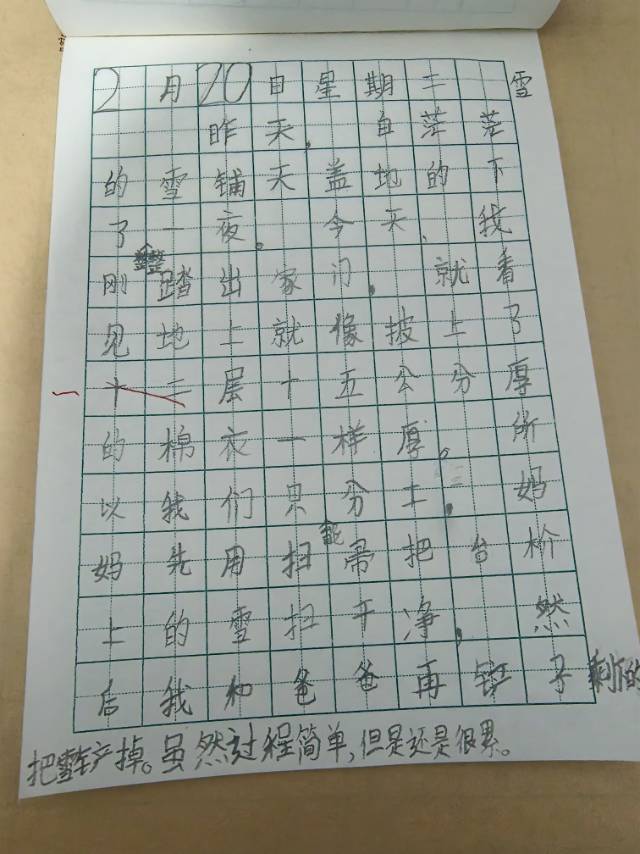 2月20日星期二 雪
昨天,白茫茫
的雪铺天盖地的下
了一夜。今天,我
刚踏出家门,就看
见地上就像披上了
十二层十五公分厚
的棉衣一样厚。所
以我们只分工,妈
妈先用扫帚把台阶
上的雪扫干净,然
后我和爸爸再 子剩的
把 产掉。虽然过程简单,但是还是很累。